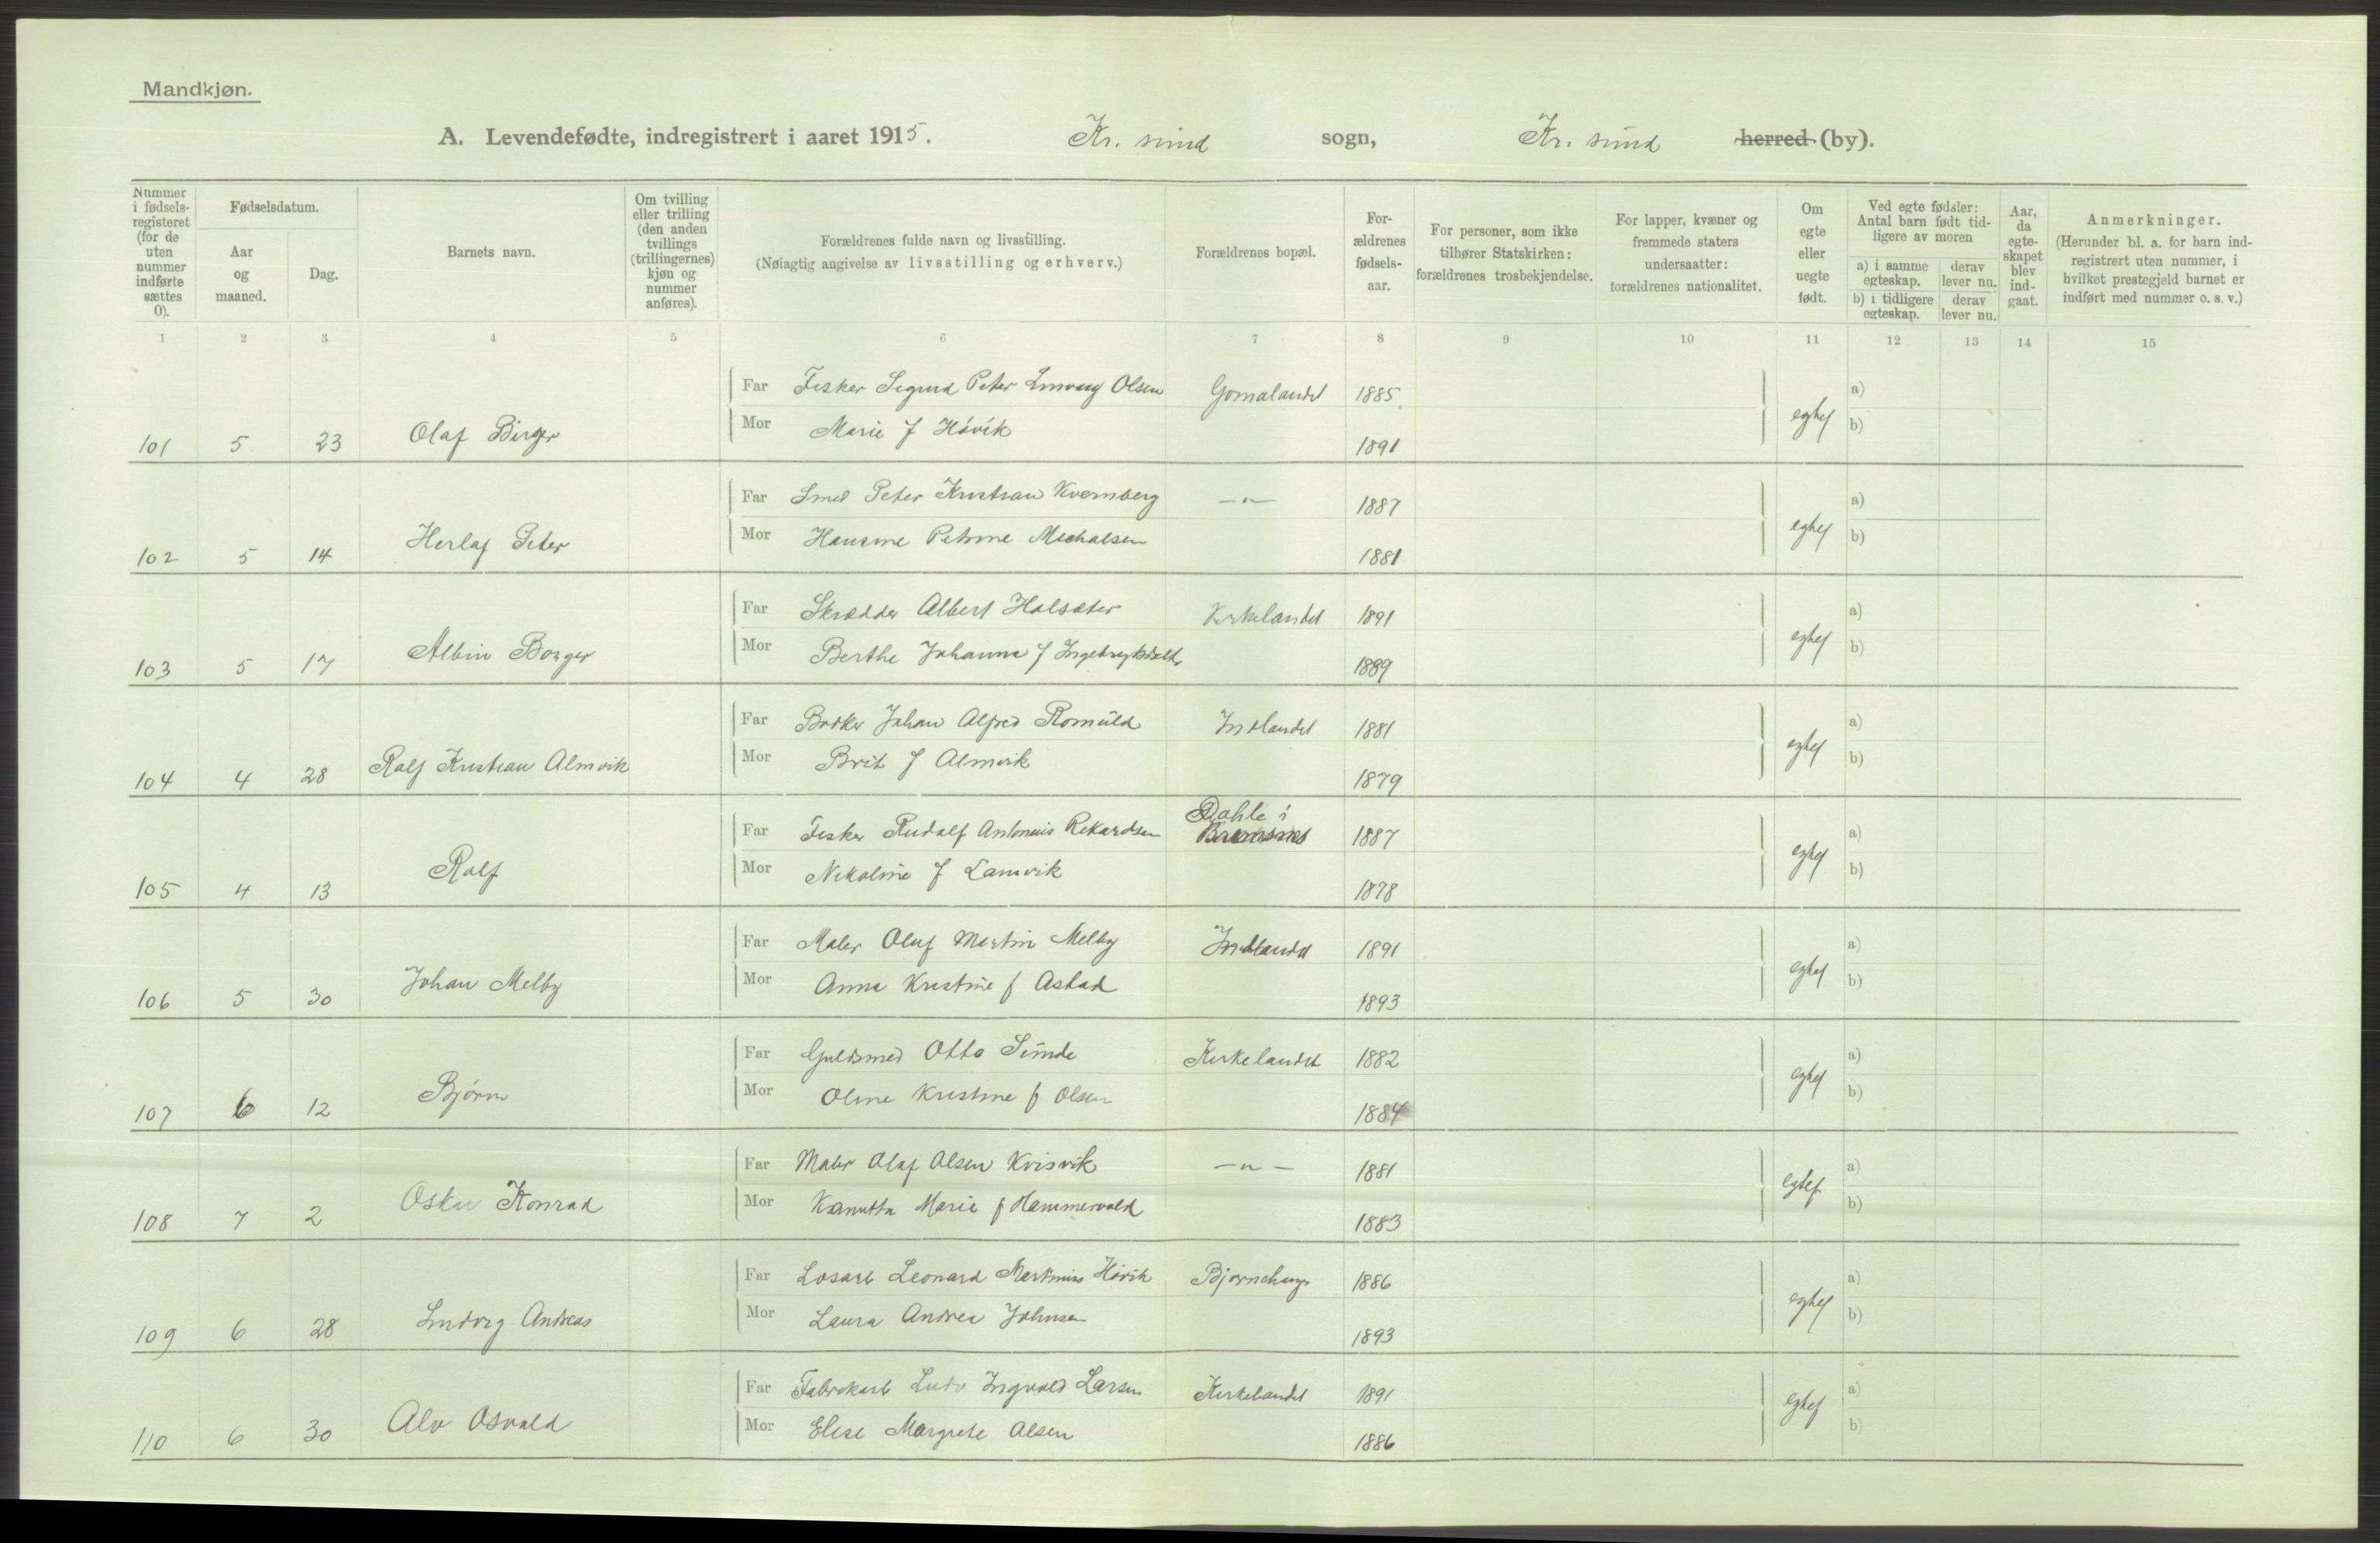 Mandkjøn.
A. Levendefødte, indregistrert i aaret 1915. Kr. sund sogn, Kr. sund herred (by).
Nummer i fødsels-registeret (for de uten nummer indførte sættes 0).
Fødselsdatum.
Aar og maaned.
Dag.
Barnets navn.
Om tvilling eller trilling (den anden tvillings (trillingernes) kjøn og nummer anføres).
Forældrenes fulde navn og livsstilling.
(Nøiagtig angivelse av livsstilling og erhverv.)
Forældrenes bopæl.
For-ældrenes fødsels-aar.
For personer, som ikke tilhører Statskirken: forældrenes trosbekjendelse.
For lapper, kvæner og fremmede staters undersaatter: forældrenes nationalitet.
Om egte eller uegte født.
Ved egte fødsler: Antal barn født tid-ligere av moren
a) i samme egteskap.
derav lever nu.
b) i tidligere egteskap.
derav lever nu.
Aar, da egte-skapet blev ind-gaat.
Anmerkninger.
(Herunder bl. a. for barn ind-registrert uten nummer, i hvilket prestegjeld barnet er indført med nummer o. s. v.)
1 2 3 4 5 6 7 8 9 10 11 12 13 14 15
Far Fisker Sigurd Peter Olsen Gomalandet 1885. a)
101 5 23 Olaf Birger Mor Marie f Håvik 1891 egtef b)
Far Smed Peter Kristian Kvernberg —"— 1887 a)
102 5 14 Herlaf Peter Mor Hansine Petrine Michalsen 1881 egtef b)
Far Skrædder Albert Halsæter Kirkelandet 1891 a)
103 5 17 Albin Borger Mor Berthe Johanna f 1889 egtef b)
Far Bødker Johan Alfred Romuld Indlandet 1881 a)
104 4 28 Ralf Kristian Almvik Mor Brit f Almvik 1879 egtef b)
Far Fisker Rudolf Antonius Rikardsen Dahle i Bremsnes 1887 a)
105 4 13 Ralf Mor Nikoline f Lamvik 1878 egtef b)
Far Maler Oluf Martin Melby Indlandet 1891 a)
106 5 30 Johan Melby Mor Anna Kristine f Astad 1893 egtef b)
Far Guldsmed Otto Sunde Kirkelandet 1882 a)
107 6 12 Bjørn Mor Oline Kristine f Olsen 1884 egtef b)
Far Maler Olaf Olsen Kvisvik —"— 1881 a)
108 7 2 Oskar Konrad Mor Kanutta Marie f Hammervold 1883 egtef b)
Far Løsarb Leonard Martinius Håvik 1886 a)
109 6 28 Ludvig Andreas Mor Laura Andrea Johnsen 1893 egtef b)
Far Fabrikarb Ludv Ingvald Larsen Kirkelandet 1891 a)
110 6 30 Alv Osvald Mor Elise Margrete Olsen 1886 egtef b)